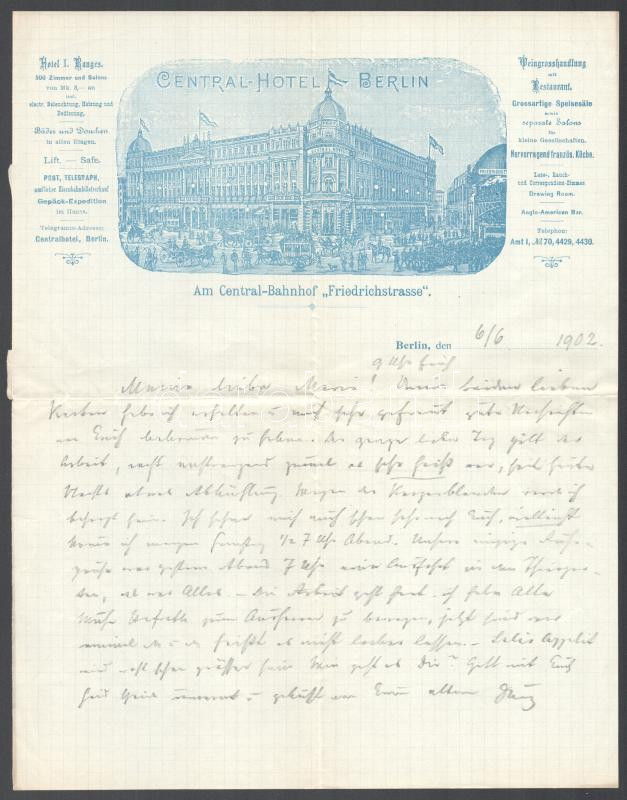 Hotel I. Ranges.
500 Zimmer und Salons
von Mk. 3,— an
incl.
electr. Beleuchtung, Heizung und
Bedienung.
Bäder und Douchen
in allen Etagen.
Lift. — Safe.
POST, TELEGRAPH,
amtlicher Eisenbahnbilletverkauf
Gepäck-Expedition
im Hause.
Telegramm-Adresse:
Centralhotel, Berlin.
CENTRAL-HOTEL BERLIN
Weingrosshandlung
mit
Restaurant.
Grossartige Speisesäle
sowie
separate Salons
für
kleine Gesellschaften.
Hervorragend französ. Küche.
Lese-, Rauch-
und Correspondenz-Zimmer.
Drawing Room.
Anglo-American Bar.
Telephon:
Amt I, № 70, 4429, 4430.
Am Central-Bahnhof „Friedrichstrasse“.
Berlin, den 6/6 1902.
9 Uhr früh
Meine liebe Marie! Deine beiden lieben
habe ich erhalten u mich sehr gefreut gute Nachrichten
von Euch bekommen zu haben. Der ganze liebe Tag gilt der
Arbeit, recht anstrengend zumal es sehr heiß war, seit heute
Nacht etwas Abkühlung. Wegen der werde ich
besorgt sein. Ich sehne mich auch schon sehr nach Euch, vielleicht
komme ich morgen Samstag ½ 7 Uhr Abend. Unsere einzige
war gestern Abend 7 Uhr eine Ausfahrt in den Thiergar-
ten, das war Alles. – Die Arbeit geht ich habe Alle
Mühe zum zu bewegen, jetzt sind wir
einmal da u da heißt es nicht locker lassen. –
wird wohl schon größer sein Wie geht es Dir? Gott mit Euch
seid u geküßt von Eurem alten